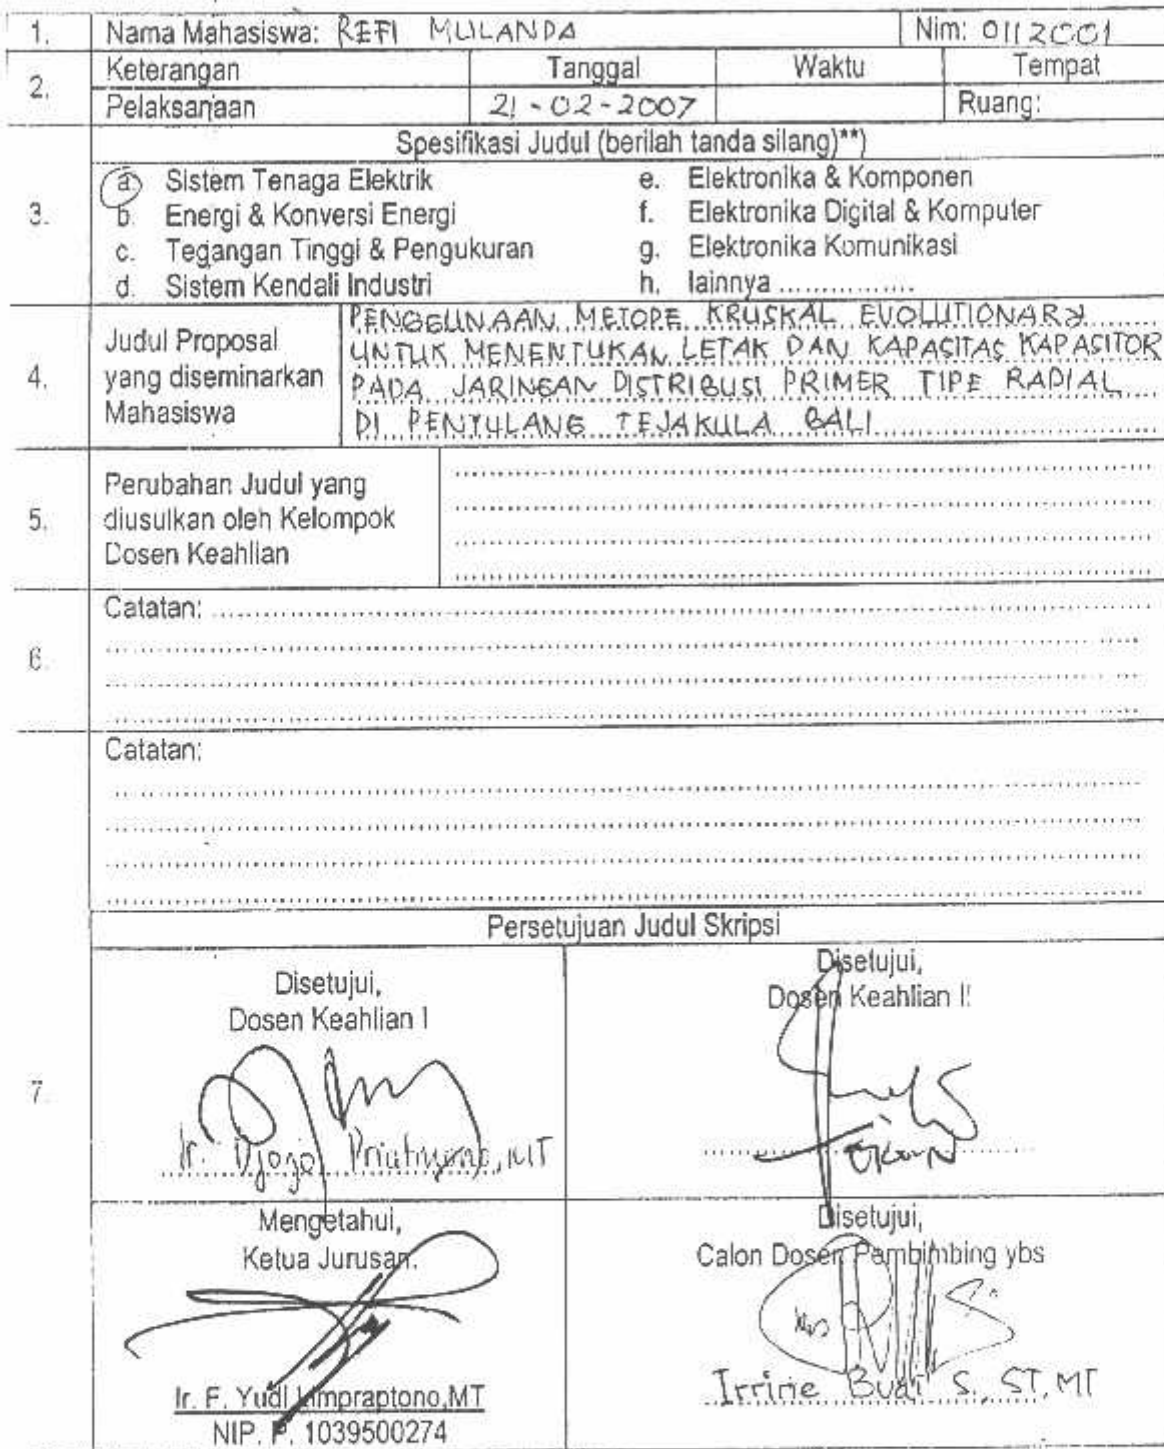 1. Nama Mahasiswa: REFI MULANDA Nim: 0112001
2. Keterangan Tanggal Waktu Tempat
Pelaksanaan 21-02-2007 Ruang:
Spesifikasi Judul (berilah tanda silang)**)
3.
a. Sistem Tenaga Elektrik e. Elektronika & Komponen
b. Energi & Konversi Energi f. Elektronika Digital & Komputer
c. Tegangan Tinggi & Pengukuran g. Elektronika Komunikasi
d. Sistem Kendali Industri h. lainnya ...............
4. Judul Proposal yang diseminarkan Mahasiswa
PENGGUNAAN METODE KRUSKAL EVOLUTIONARY
UNTUK MENENTUKAN LETAK DAN KAPASITAS KAPASITOR
PADA JARINGAN DISTRIBUSI PRIMER TIPE RADIAL
DI PENYULANG TEJAKULA BALI
5. Perubahan Judul yang
diusulkan oleh Kelompok
Dosen Keahlian
6. Catatan:
Catatan:
Persetujuan Judul Skripsi
7.
Disetujui,
Dosen Keahlian I
Ir. Djojo Priatmono, MT
Disetujui,
Dosen Keahlian II
Mengetahui,
Ketua Jurusan.
Ir. F. Yudi Limpraptono,MT
NIP. P. 1039500274
Disetujui,
Calon Dosen Pembimbing ybs
Irrine Budi S., ST, MT